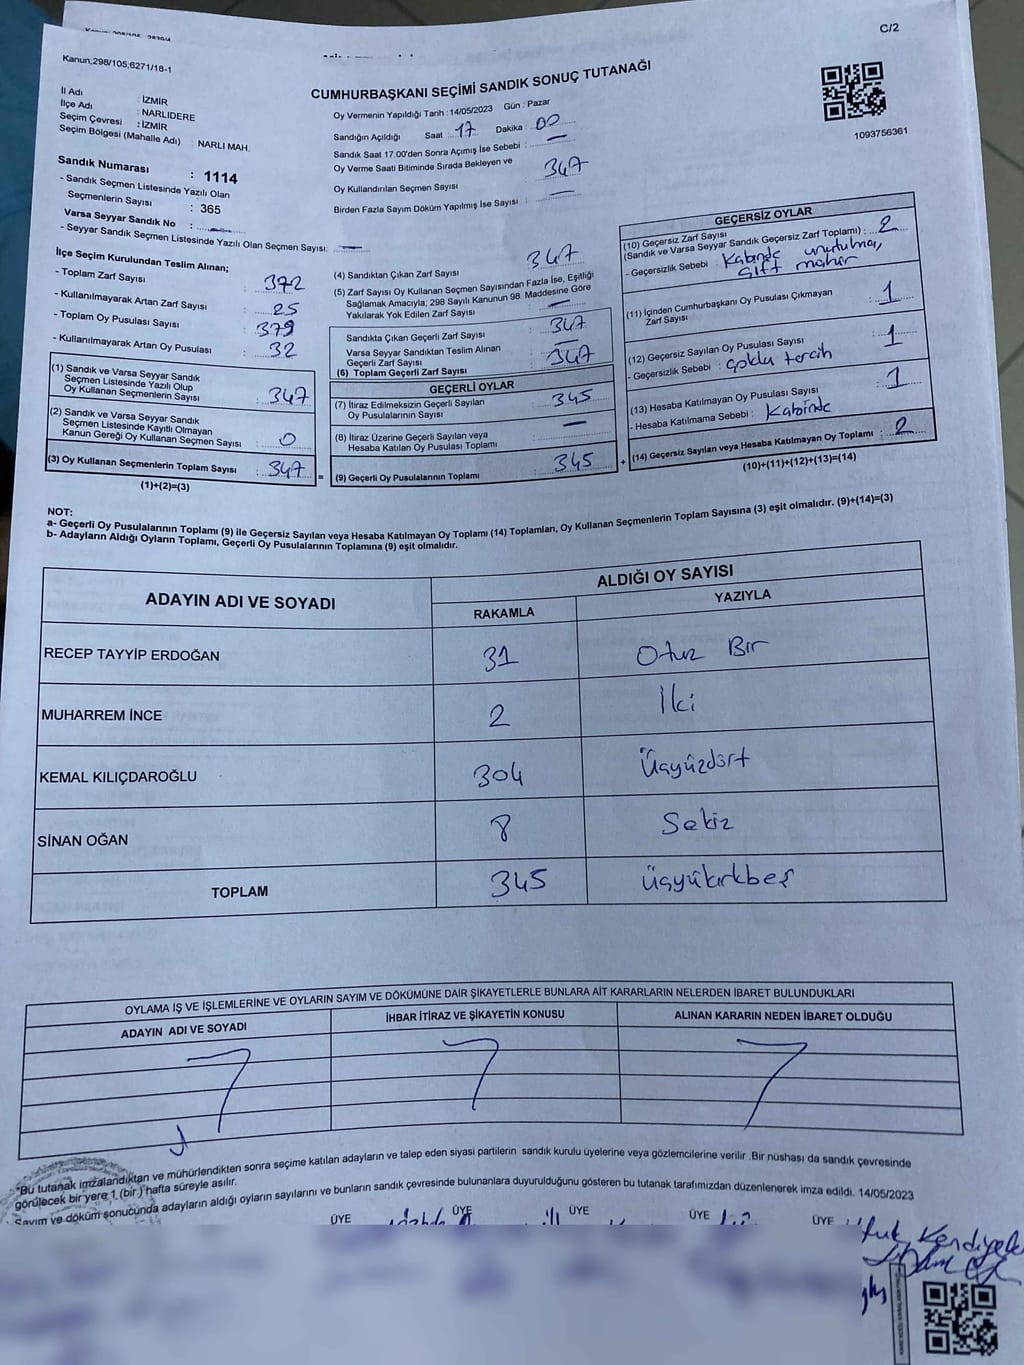 C/2
Kanun;298/105;6271/18-1
CUMHURBAŞKANI SEÇİMİ SANDIK SONUÇ TUTANAĞI
İl Adı : İZMİR
İlçe Adı : NARLIDERE
Seçim Çevresi : İZMİR
Seçim Bölgesi (Mahalle Adı) : NARLI MAH.
Sandık Numarası : 1114
- Sandık Seçmen Listesinde Yazılı Olan
Seçmenlerin Sayısı : 365
Varsa Seyyar Sandık No : —
- Seyyar Sandık Seçmen Listesinde Yazılı Olan Seçmen Sayısı: —
Oy Vermenin Yapıldığı Tarih : 14/05/2023 Gün : Pazar
Sandığın Açıldığı Saat : 17 Dakika : 00
Sandık Saat 17:00'den Sonra Açımış İse Sebebi : —
Oy Verme Saati Bitiminde Sırada Bekleyen ve
Oy Kullandırılan Seçmen Sayısı 347
Birden Fazla Sayım Döküm Yapılmış İse Sayısı : —
1093756361
İlçe Seçim Kurulundan Teslim Alınan;
- Toplam Zarf Sayısı : 372
- Kullanılmayarak Artan Zarf Sayısı : 25
- Toplam Oy Pusulası Sayısı : 379
- Kullanılmayarak Artan Oy Pusulası : 32
(1) Sandık ve Varsa Seyyar Sandık
Seçmen Listesinde Yazılı Olup
Oy Kullanan Seçmenlerin Sayısı : 347
(2) Sandık ve Varsa Seyyar Sandık
Seçmen Listesinde Kayıtlı Olmayan
Kanun Gereği Oy Kullanan Seçmen Sayısı : 0
(3) Oy Kullanan Seçmenlerin Toplam Sayısı : 347
(1)+(2)=(3)
(4) Sandıktan Çıkan Zarf Sayısı : 347
(5) Zarf Sayısı Oy Kullanan Seçmen Sayısından Fazla İse, Eşitliği
Sağlamak Amacıyla; 298 Sayılı Kanunun 98. Maddesine Göre
Yakılarak Yok Edilen Zarf Sayısı : —
Sandıkta Çıkan Geçerli Zarf Sayısı : 347
Varsa Seyyar Sandıktan Teslim Alınan
Geçerli Zarf Sayısı : —
(6) Toplam Geçerli Zarf Sayısı : 347
GEÇERLİ OYLAR
(7) İtiraz Edilmeksizin Geçerli Sayılan
Oy Pusulalarının Sayısı : 345
(8) İtiraz Üzerine Geçerli Sayılan veya
Hesaba Katılan Oy Pusulası Toplamı : —
= (9) Geçerli Oy Pusulalarının Toplamı : 345
GEÇERSİZ OYLAR
(10) Geçersiz Zarf Sayısı
(Sandık ve Varsa Seyyar Sandık Geçersiz Zarf Toplamı) : 2
- Geçersizlik Sebebi : Kabinde unutulma,
çift mühür
(11) İçinden Cumhurbaşkanı Oy Pusulası Çıkmayan
Zarf Sayısı : 1
(12) Geçersiz Sayılan Oy Pusulası Sayısı : 1
- Geçersizlik Sebebi : çoklu tercih
(13) Hesaba Katılmayan Oy Pusulası Sayısı : 1
- Hesaba Katılmama Sebebi : Kabinde
+ (14) Geçersiz Sayılan veya Hesaba Katılmayan Oy Toplamı : 2
(10)+(11)+(12)+(13)=(14)
NOT:
a- Geçerli Oy Pusulalarının Toplamı (9) ile Geçersiz Sayılan veya Hesaba Katılmayan Oy Toplamı (14) Toplamları, Oy Kullanan Seçmenlerin Toplam Sayısına (3) eşit olmalıdır. (9)+(14)=(3)
b- Adayların Aldığı Oyların Toplamı, Geçerli Oy Pusulalarının Toplamına (9) eşit olmalıdır.
ADAYIN ADI VE SOYADI ALDIĞI OY SAYISI
RAKAMLA YAZIYLA
RECEP TAYYİP ERDOĞAN 31 Otuz Bir
MUHARREM İNCE 2 İki
KEMAL KILIÇDAROĞLU 304 Üçyüzdört
SİNAN OĞAN 8 Sekiz
TOPLAM 345 üçyükırkbeş
OYLAMA İŞ VE İŞLEMLERİNE VE OYLARIN SAYIM VE DÖKÜMÜNE DAİR ŞİKAYETLERLE BUNLARA AİT KARARLARIN NELERDEN İBARET BULUNDUKLARI
ADAYIN ADI VE SOYADI İHBAR İTİRAZ VE ŞİKAYETİN KONUSU ALINAN KARARIN NEDEN İBARET OLDUĞU
"Bu tutanak imzalandıktan ve mühürlendikten sonra seçime katılan adayların ve talep eden siyasi partilerin sandık kurulu üyelerine veya gözlemcilerine verilir .Bir nüshası da sandık çevresinde
görülecek bir yere 1 (bir) hafta süreyle asılır.
Sayım ve döküm sonucunda adayların aldığı oyların sayılarını ve bunların sandık çevresinde bulunanlara duyurulduğunu gösteren bu tutanak tarafımızdan düzenlenerek imza edildi. 14/05/2023
ÜYE ÜYE ÜYE ÜYE ÜYE